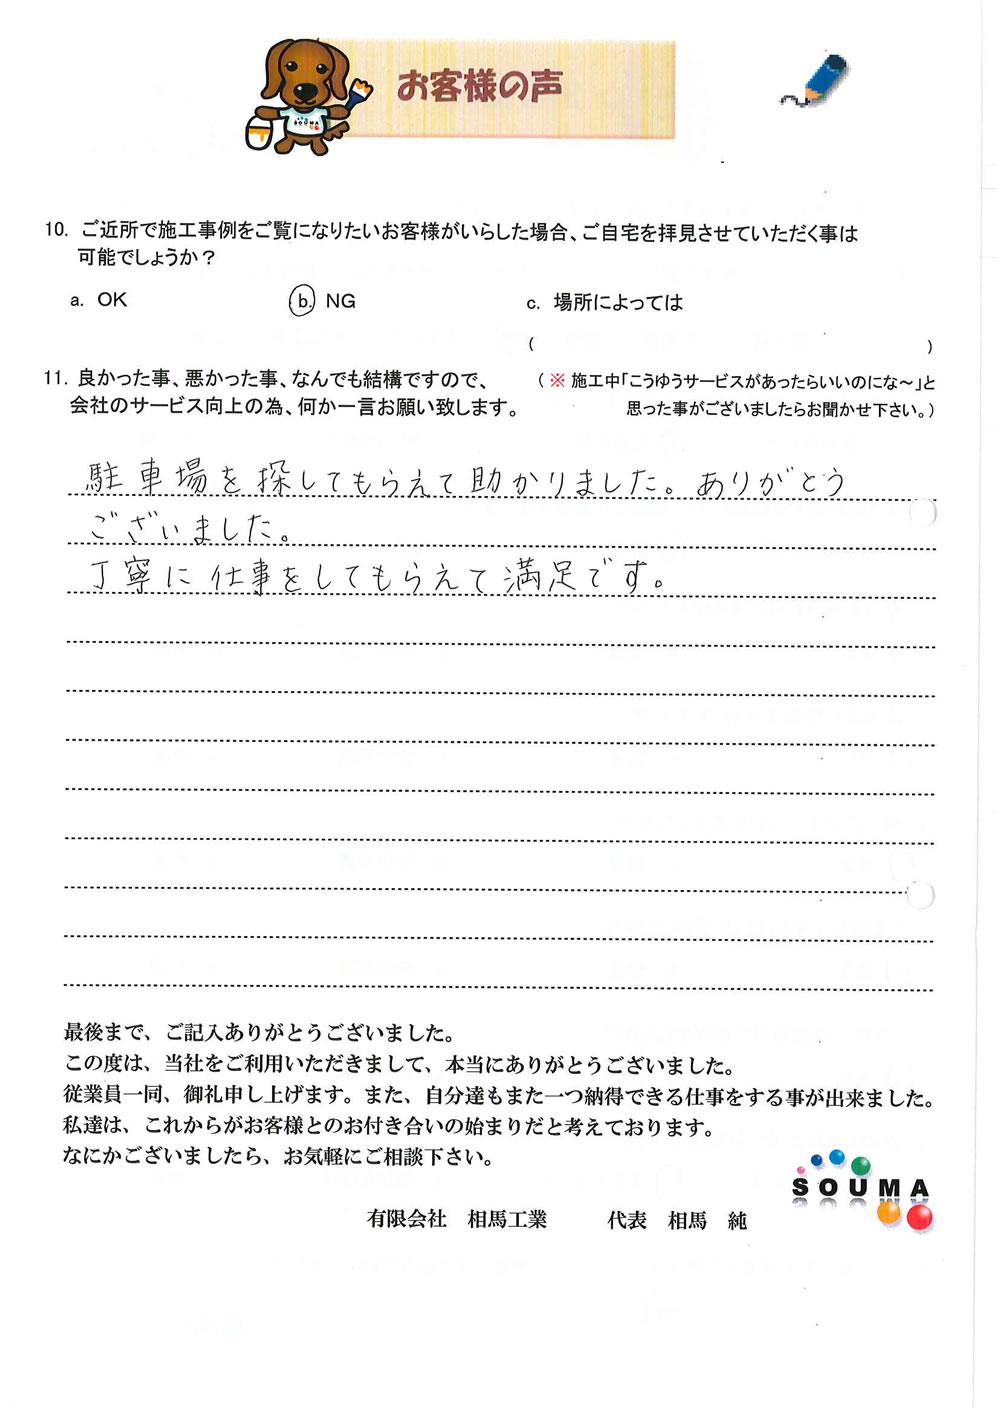 SOUMA
お客様の声
10. ご近所で施工事例をご覧になりたいお客様がいらした場合、ご自宅を拝見させていただく事は
可能でしょうか？
a. OK b. NG c. 場所によっては
( )
11. 良かった事、悪かった事、なんでも結構ですので、 （ ※ 施工中「こうゆうサービスがあったらいいのにな～」と
会社のサービス向上の為、何か一言お願い致します。 思った事がございましたらお聞かせ下さい。）
駐車場を探してもらえて助かりました。ありがとう
ございました。
丁寧に仕事をしてもらえて満足です。
最後まで、ご記入ありがとうございました。
この度は、当社をご利用いただきまして、本当にありがとうございました。
従業員一同、御礼申し上げます。また、自分達もまた一つ納得できる仕事をする事が出来ました。
私達は、これからがお客様とのお付き合いの始まりだと考えております。
なにかございましたら、お気軽にご相談下さい。
SOUMA
有限会社 相馬工業 代表 相馬 純